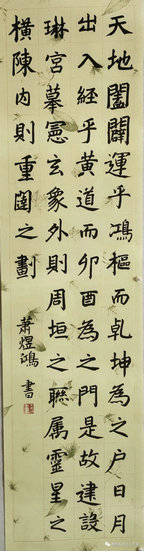 天地闔闢運乎鴻樞而乾坤為之户日月
出入經乎黄道而卯酉為之門是故建設
琳宮摹憲玄象外則周垣之聯属靈星之
横陳内則重闥之劃
蕭煜鴻書